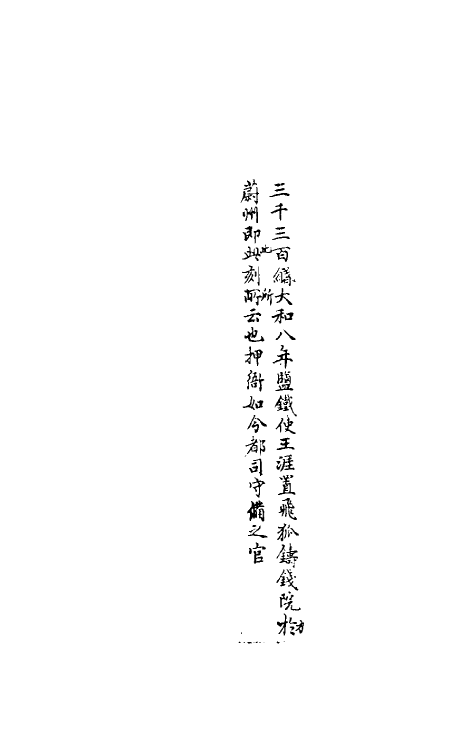 三千三百緡大和八年鹽鐵使王涯置飛狐鑄錢院於
蔚州即此刻所云也押衙如今都司守備之官